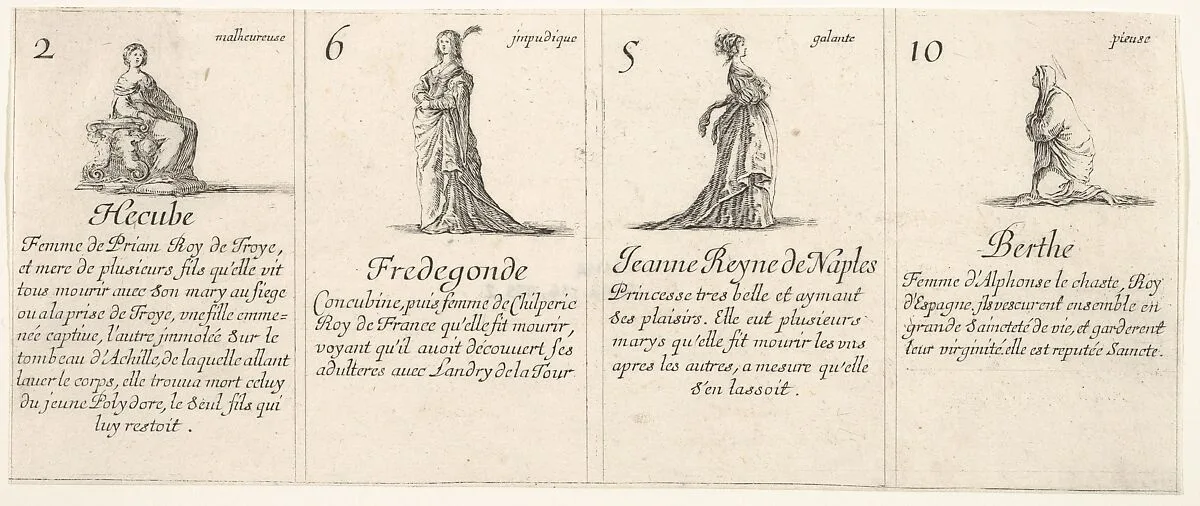 2
malheureuse
Hecube
Femme de Priam Roy de Troye,
et mere de plusieurs fils qu'elle vit
tous mourir avec son mary au siege
ou a la prise de Troye, vne fille emme-
née captiue, l'autre jmmolée sur le
tombeau d'Achille, de laquelle allant
lauer le corps, elle trouua mort celuy
du jeune Polydore, le seul fils qui
luy restoit.
6
jmpudique
Fredegonde
Concubine, puis femme de Chilperic
Roy de France qu'elle fit mourir,
voyant qu'il auoit découuert ses
adulteres avec Landry de la Tour
5
galante
Jeanne Reyne de Naples
Princesse tres belle et aymant
ses plaisirs. Elle eut plusieurs
marys qu'elle fit mourir les vns
apres les autres, a mesure qu'elle
s'en lassoit.
10
pieuse
Berthe
Femme d'Alphonse le chaste, Roy
d'Espagne, jls vescurent ensemble en
grande saincteté de vie, et garderent
leur virginité. elle est reputée Saincte.